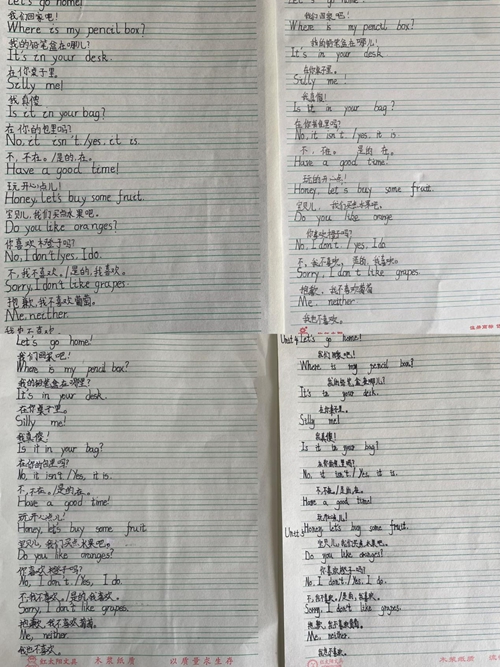 Let's go home!
我们回家吧!
Where is my pencil box?
我的铅笔盒在哪儿?
It's in your desk.
在你桌子里。
Silly me!
我真傻
Is it in your bag?
在你的包里吗?
No, it isn't /yes, it is.
不,不在。/是的,在。
Have a good time!
玩开心点儿!
Honey, Let's buy some fruit.
宝贝儿,我们买点水果吧。
Do you like oranges?
你喜欢橙子吗?
No, I don't/yes, I do.
不,我不喜欢。/是的,我喜欢。
Sorry, I don't like grapes.
抱歉,我不喜欢葡萄。
Me, neither.
我们回家吧!
Where is my pencil box?
我的铅笔盒在哪儿!
It's in your desk
在你桌子里。
Silly me!
我真傻!
Is it in your bag?
在你的包里吗?
No, it isn't /yes, it is
不,不在。 是的 在。
Have a good time!
玩的开心点!
Honey, let's buy some fruit.
宝贝儿,我们买点水果吧。
Do you like orange
你喜欢橙子吗?
No, I don't /yes, I do
不,我不喜欢,是的,我喜欢。
Sorry, I don't like grapes.
抱歉,我不喜欢葡萄
Me, neither
我也不喜欢。
Let's go home!
我们回家吧!
Where is my pencil box?
我的铅笔盒在哪里?
It's in your desk.
在你桌子里。
Silly me!
我真傻!
Is it in your bag?
在你的包里吗?
No, it isn't./Yes, it is.
不,不在。/是的,在。
Have a good time!
玩开心点儿!
Honey, let's buy some fruit
宝贝儿,我们买点水果吧。
Do you like oranges?
你喜欢橙子吗?
No, I don't./Yes, I do.
不,我不喜欢。/是的,我喜欢。
Sorry, I don't like grapes.
抱歉,我不喜欢葡萄。
Me, neither.
我也不喜欢。
红太阳文具 木浆纸质 以质量求生存
Unit 4 Let's go home!
我们回家吧!
Where is my pencil box?
我的铅笔盒在哪儿?
It's in your desk.
在你桌子里。
Silly me!
我真傻!
Is it in your bag?
在你的包里吗?
No, it isn't/Yes, it is.
不,不在。/是的,在。
Have a good time!
玩开心点儿!
Unit 5 Honey, let's buy some fruit.
宝贝儿,我们买点水果吧。
Do you like oranges!
你喜欢橙子吗!
No, I don't./Yes, I do.
不,我不喜欢。/是的,我喜欢。
Sorry, I don't like grapes.
抱歉,我不喜欢葡萄。
Me, neither.
我也不喜欢。
木浆纸质